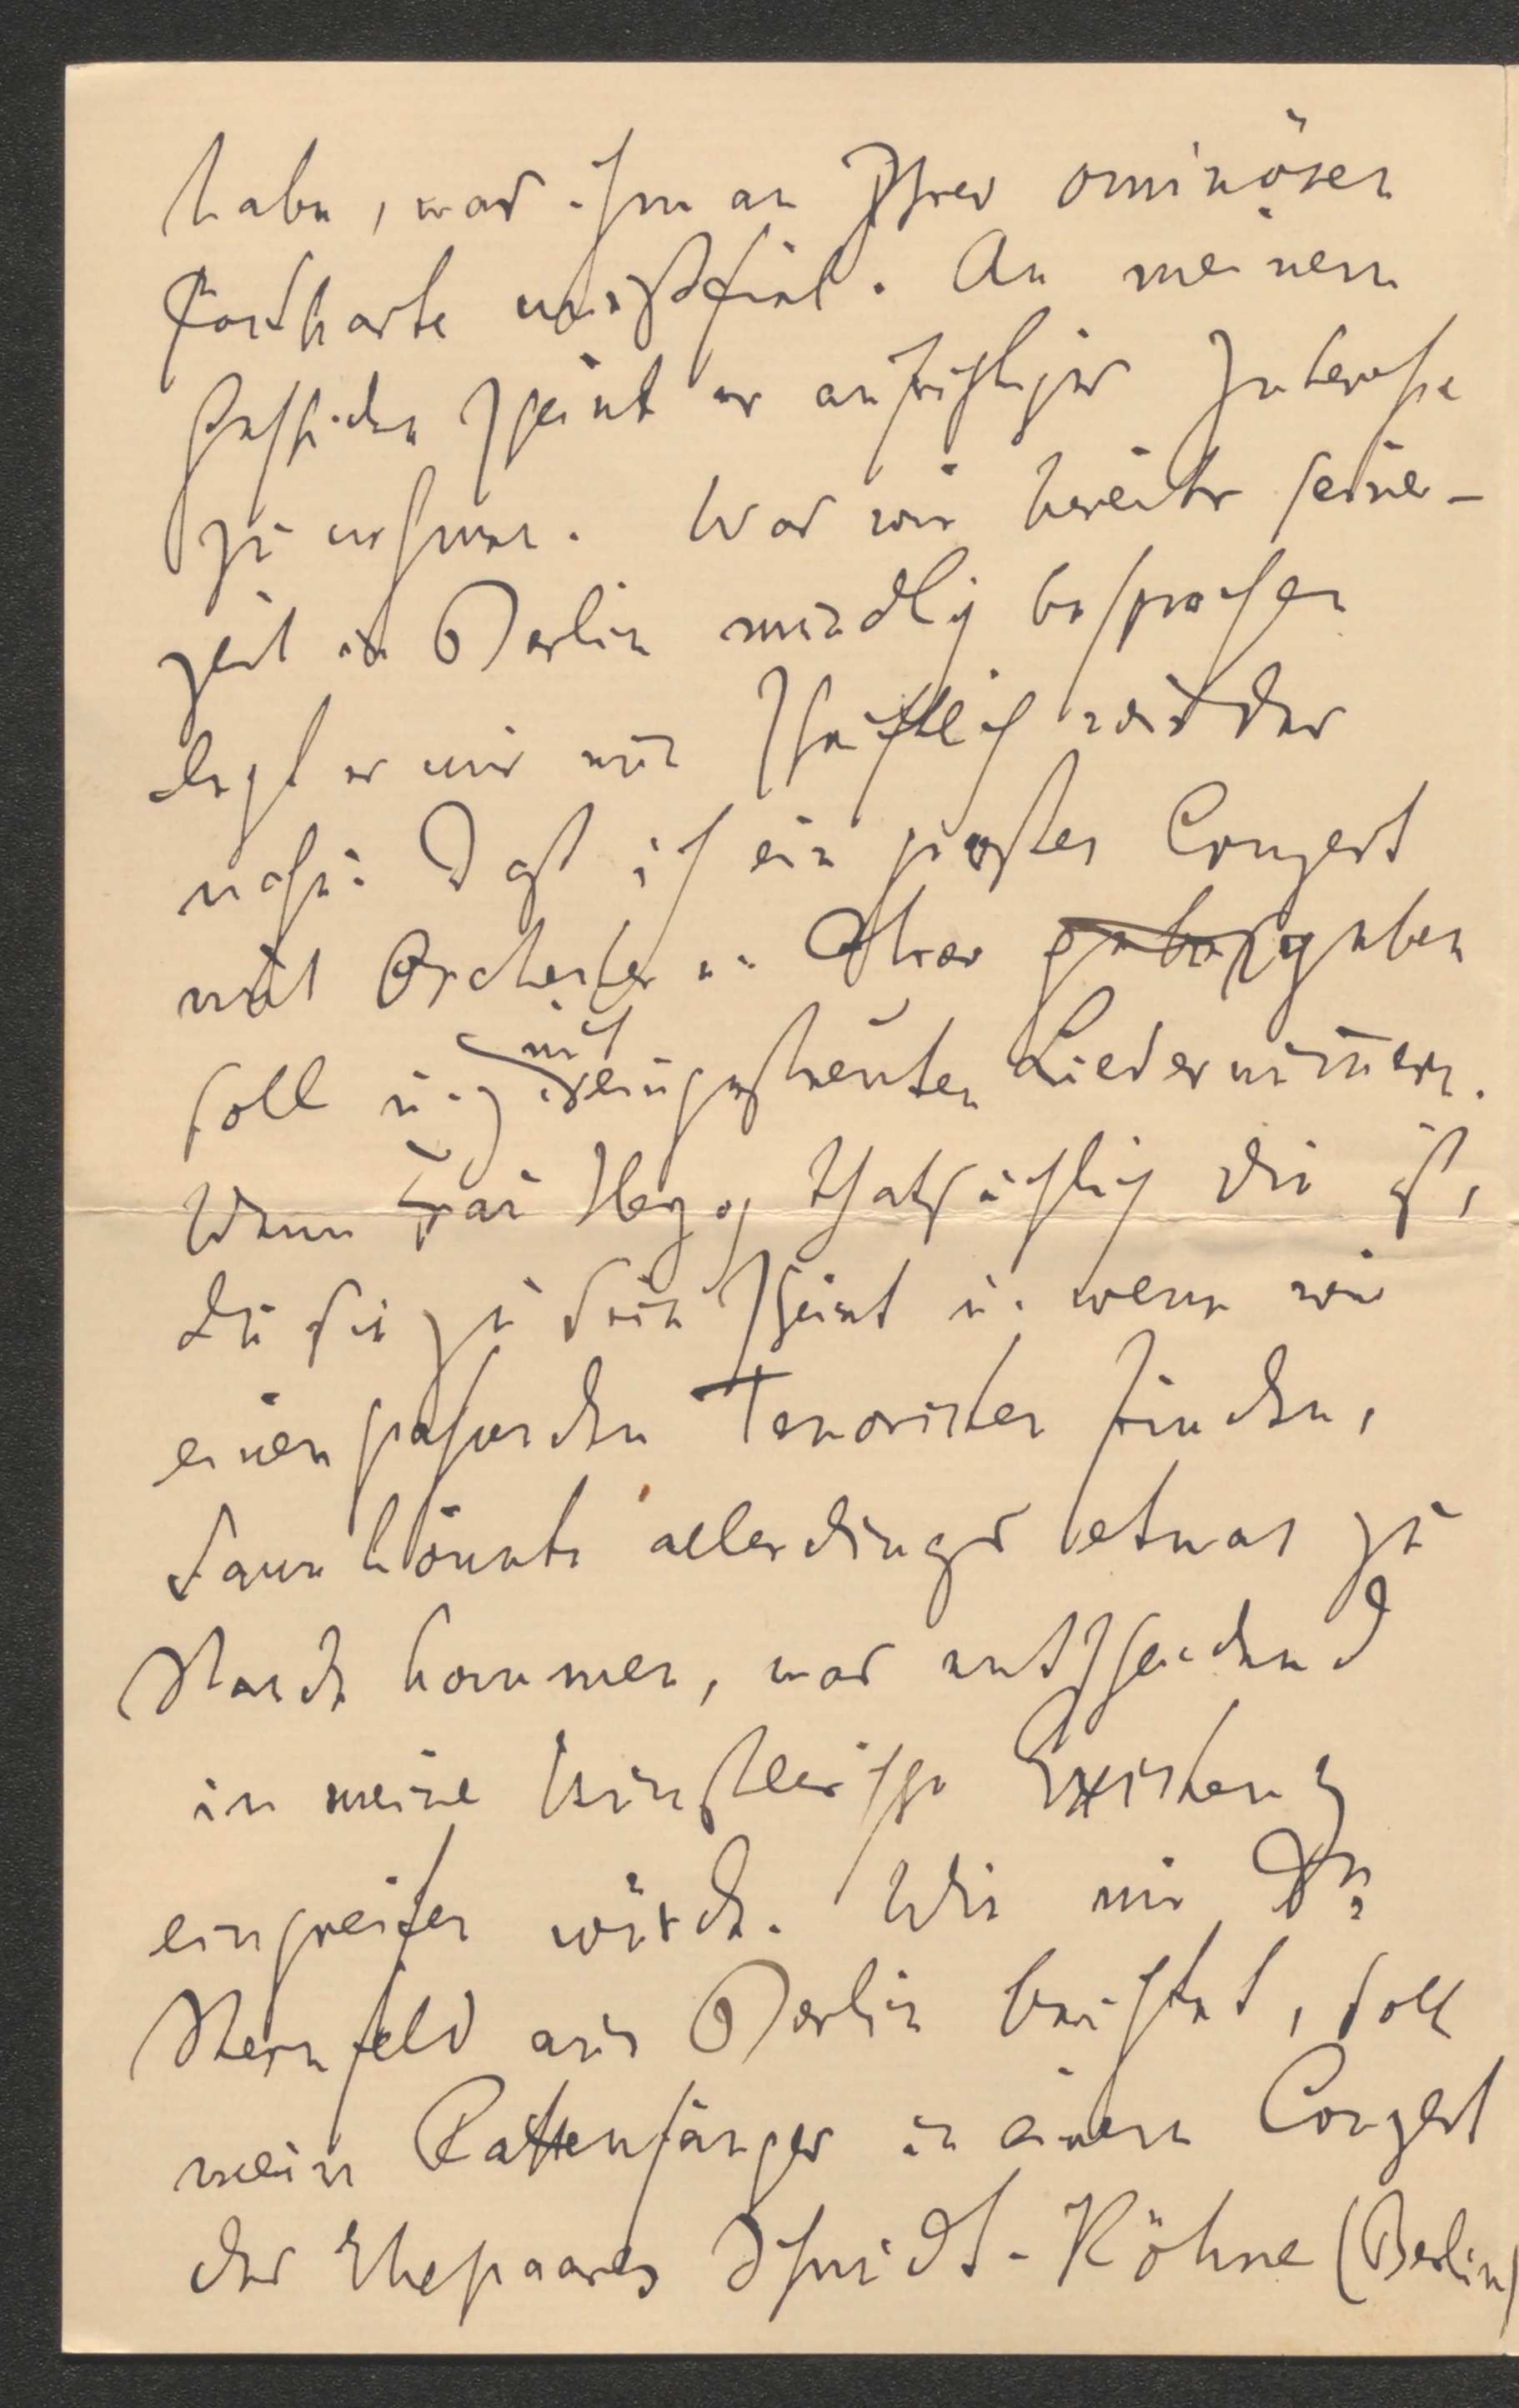 habe, was ihm an Ihrer ominösen
Postkarte mißfiel. An meinem
Geschicke scheint er aufrichtiges Interesse
zu nehmen. Was wir bereits seiner-
zeit in Berlin mündlich besprochen
legt er mir nun schriftlich wieder
nahe: Daß ich ein großes Conzert
mit Orchester u. Chor geben
soll u. mit eingestreuten Liedernummern.
Wenn Frau Herzog thatsächlich die ist,
die sie zu sein scheint u. wenn wir
einen passenden Tenoristen finden,
dann könnte allerdings etwas zu
Stande kommen, was entscheidend
in meine künstlerische Existenz
eingreifen würde. Wie mir Dr
Sternfeld aus Berlin berichtet, soll
mein Rattenfänger in einem Conzert
des Ehepaares Schmidt-Köhne (Berlin)